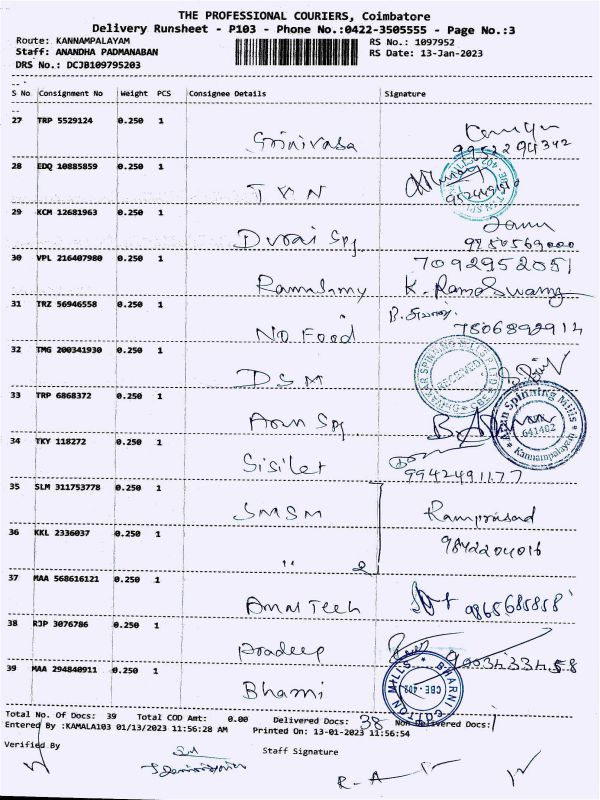 THE PROFESSIONAL COURIERS, Coimbatore
Delivery Runsheet - P103 - Phone No.:0422-3505555 - Page No.:3
Route: KANNAMPALAYAM RS No.: 1097952
Staff: ANANDHA PADMANABAN RS Date: 13-Jan-2023
DRS No.: DCJB109795203
S No Consignment No Weight PCS Consignee Details Signature
27 TRP 5529124 0.250 1
Srinivasa 9952294342
28 EDQ 10885859 0.250 1
TKN
29 KCM 12681963 0.250 1
Durai Spg.
30 VPL 216407980 0.250 1 7092952051
Ramasmy K. Ramaswamy
31 TRZ 56946558 0.250 1
No Food 7806892912
32 TMG 200341930 0.250 1
DSM SPINNING MILLS RECEIVED
33 TRP 6868372 0.250 1
Arun Spg. Arun Spinning Mills 641402 Kannampalayam
34 TKY 118272 0.250 1
Sisilet 9942491177
35 SLM 311753778 0.250 1
SMSM Ramprasad
36 KKL 2336037 0.250 1 9842204016
" 2
37 MAA 568616121 0.250 1
Amm Tech 9865685858
38 RJP 3076786 0.250 1
Pradeep 9003433458
39 MAA 294840911 0.250 1
Bharni BHARNI COTTON MILLS CBE - 402
Total No. Of Docs: 39 Total COD Amt: 0.00 Delivered Docs: 38 Non Delivered Docs: 1
Entered By :KAMALA103 01/13/2023 11:56:28 AM Printed On: 13-01-2023 11:56:54
Verified By Staff Signature